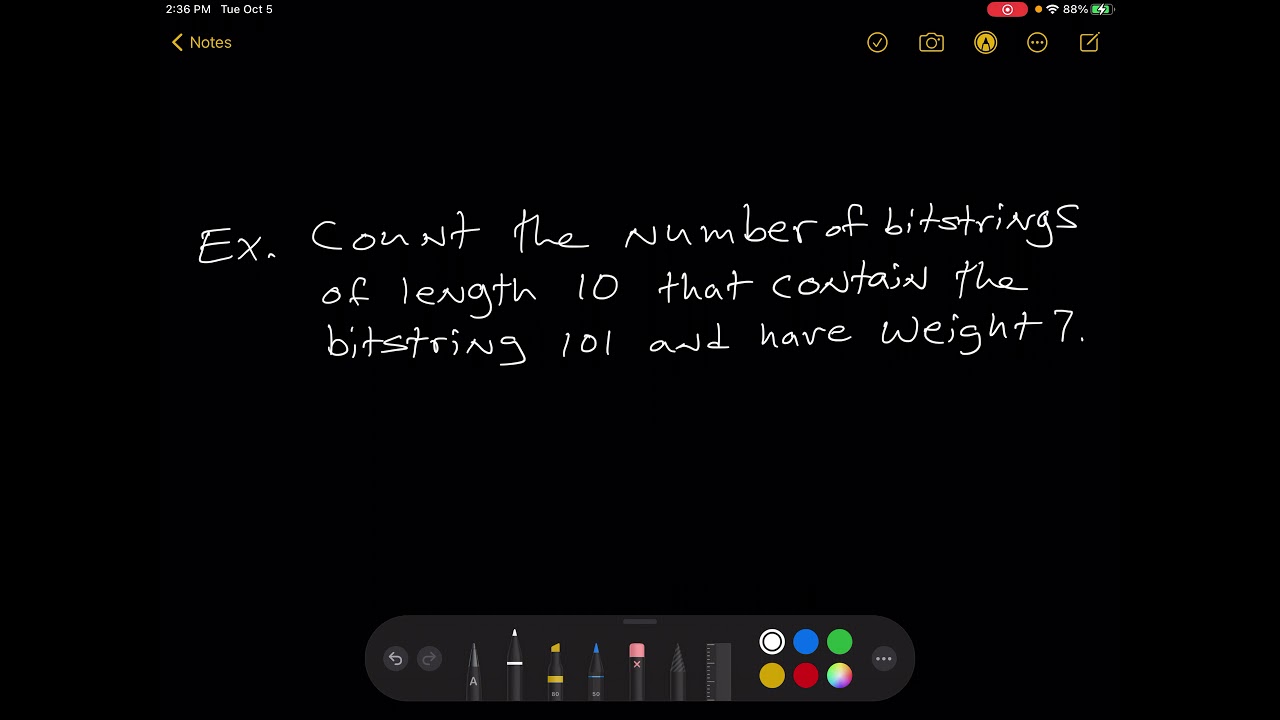 2:36 PM Tue Oct 5
88%
Notes
Ex. Count the number of bitstrings
of length 10 that contain the
bitstring 101 and have weight 7.
A
80
50